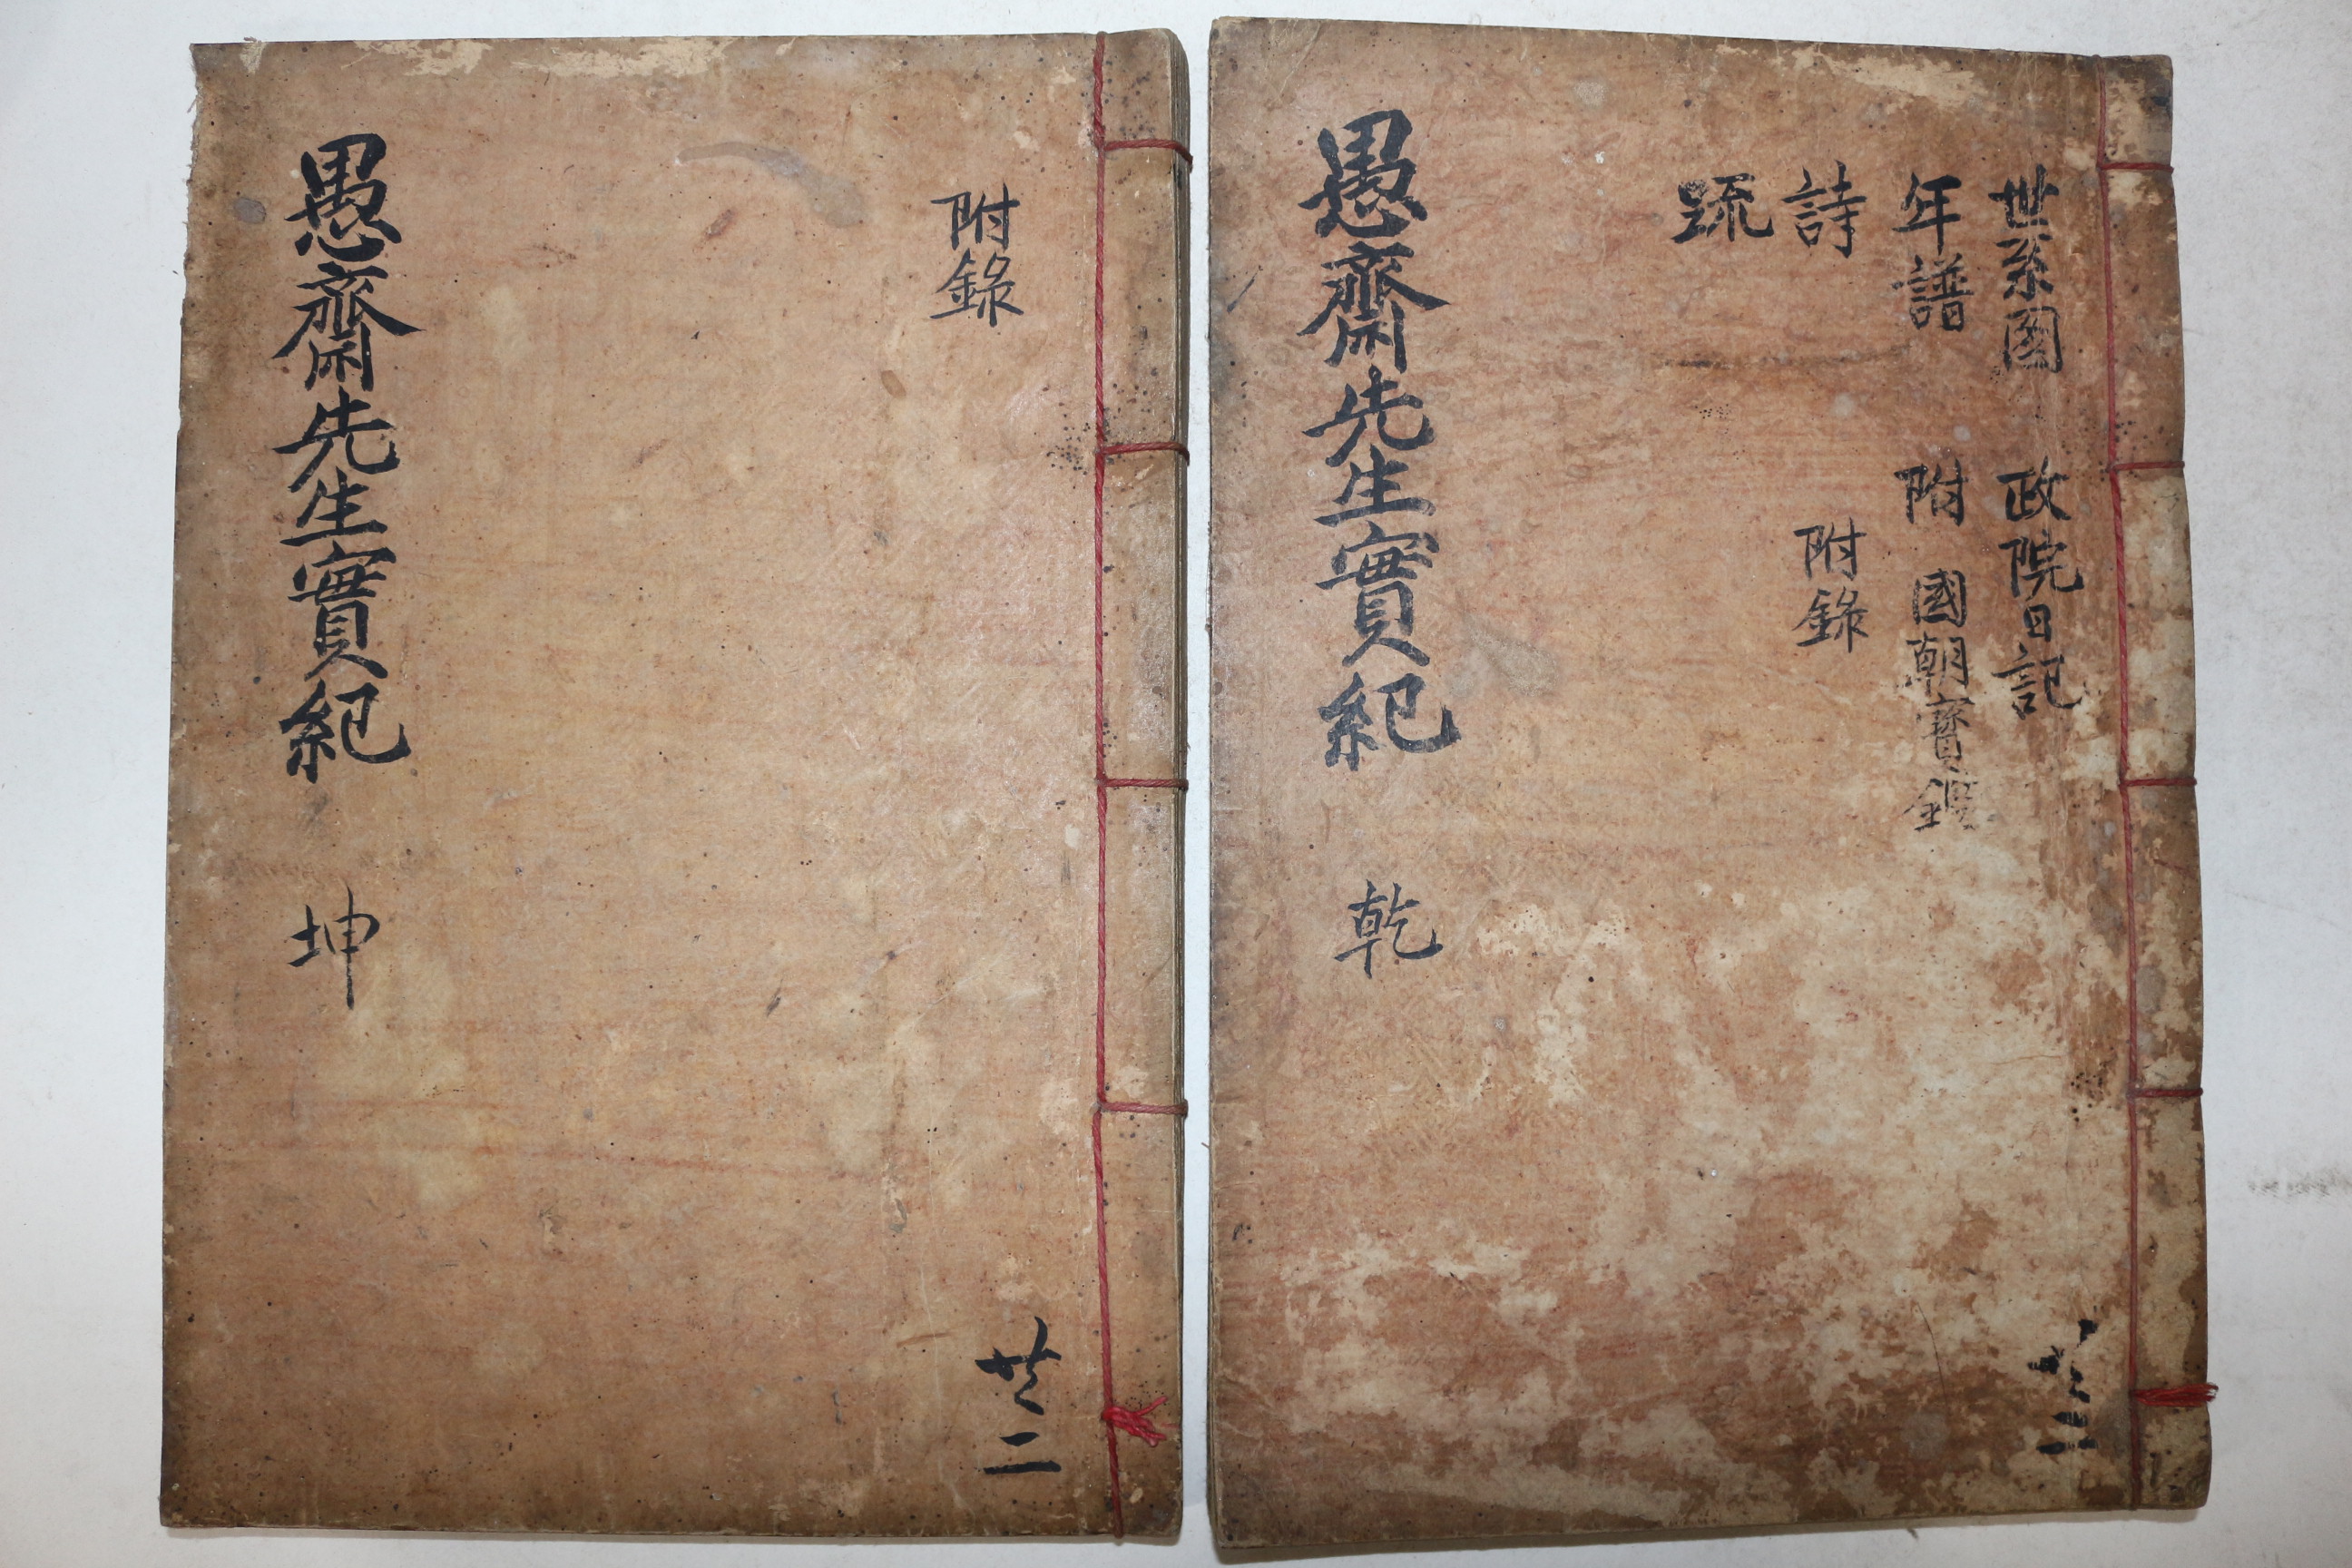 世系圖 政院日記
年譜 附 國朝寶鑑
詩 附錄
䟽
共二
愚齋先生實紀 乾
附錄
共二
愚齋先生實紀 坤